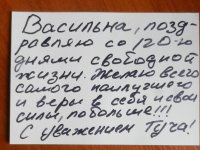 Васильна, позд-
равляю со 120-ю
днями свободной
жизни. Желаю всего
самого наилучшего
и веры в себя и свои
силы, побольше!!!
С уважением Туча!